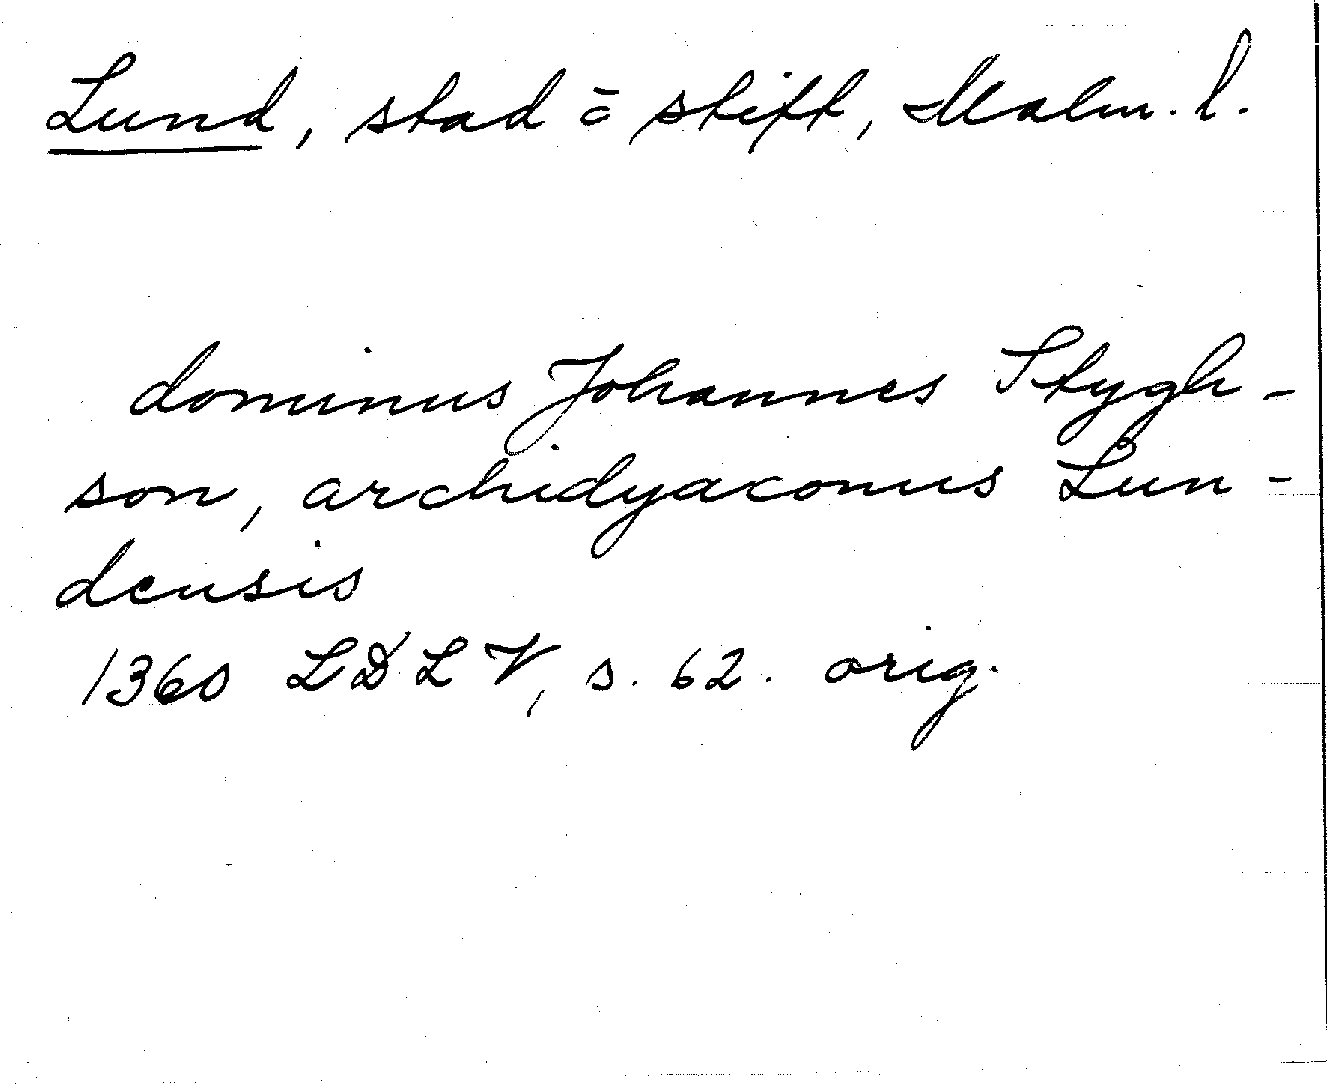 Lund, stad o stift, Malm. l.
dominus Johannes Stygh-
son, archidyaconus Lun-
densis
1360 LDL V, s. 62. orig.